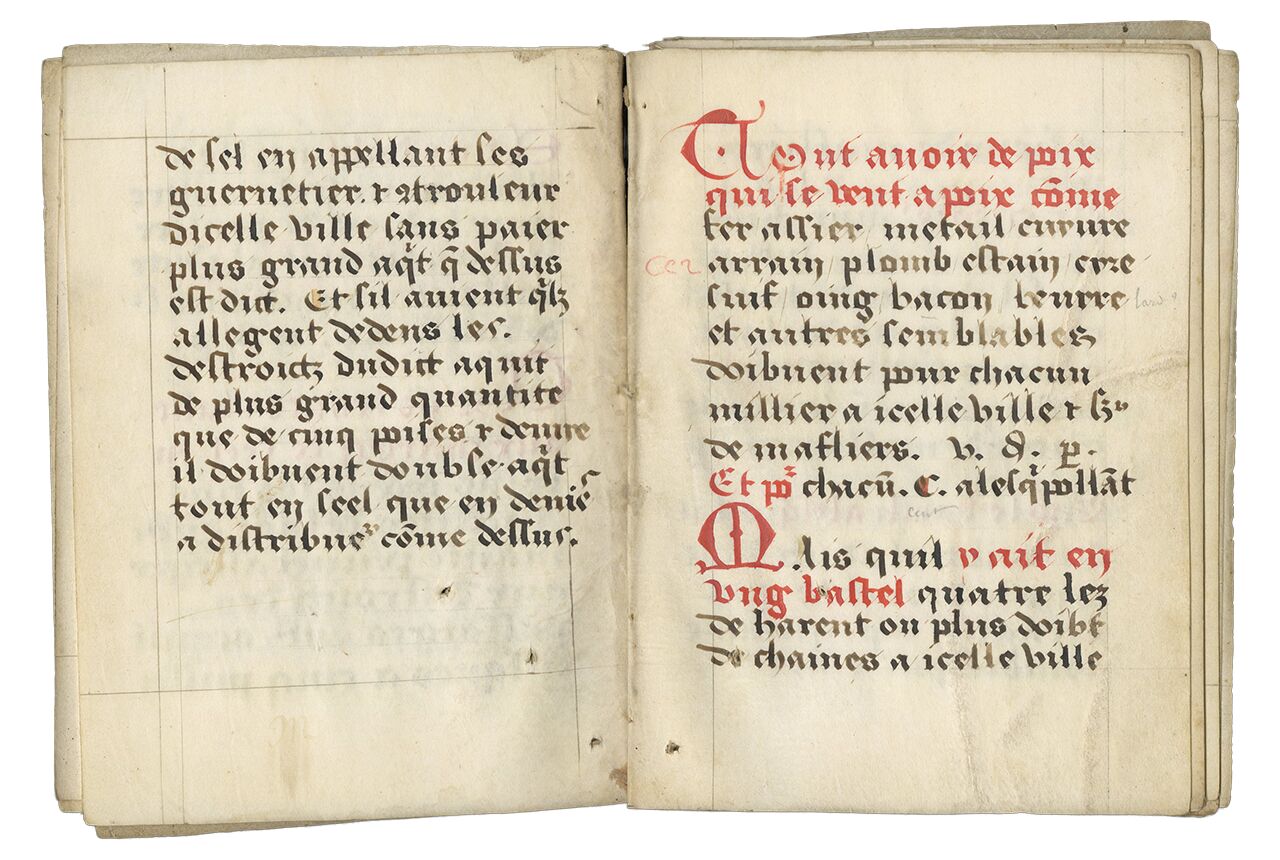 de sel en appellant ses
guernetier. ⁊ ꝯtrouleur
dicelle ville sans paier
plus grand aq̃t q̃ dessus
est dict. Et sil auient
allegent dedens les.
destroictz dudict aquit
de plus grand quantite
que de cinq poises ⁊ demie
il doibuent double aq̃t
tout en seel que en denie
a distribue cõme dessus.
Tout auoir de poix
qui se vent a poix cõme
fer assier / metail cuyure
arrain / plomb estain / cyre
suif / oing / bacon / beurre
et autres semblables
doibuent pour chacun
millier a icelle ville ⁊
de mafliers. v. d. p.
Et po᷑ chacũ. C. alesq̃pollãt
cent
Mais quil y ait en
vng bastel quatre lez
de harent ou plus doibt
de chaines a icelle ville